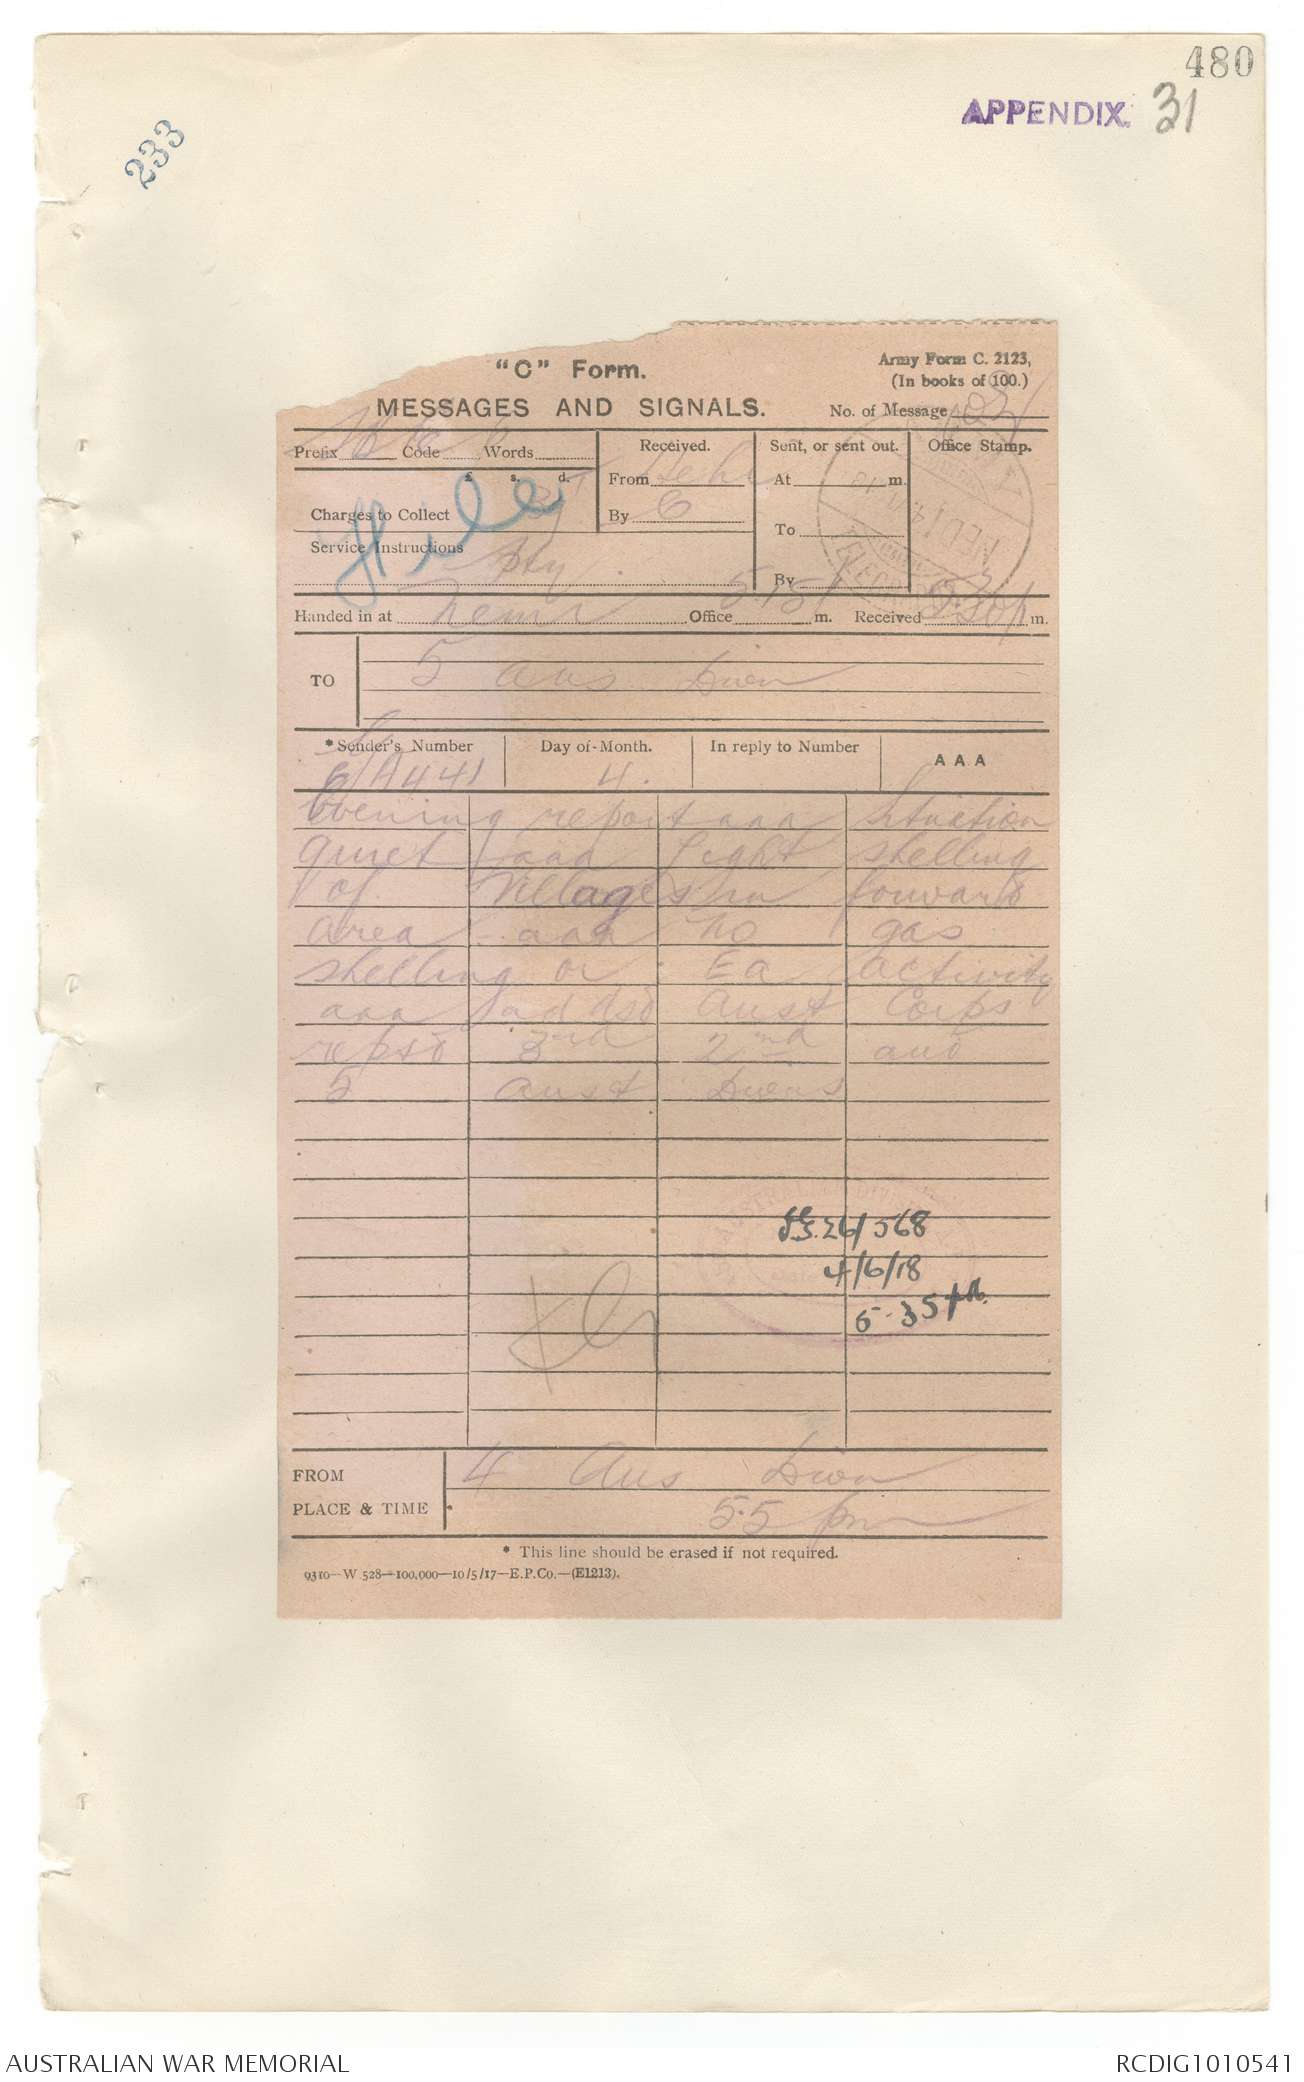 480
APPENDIX. 31
233
"C" Form.
Army Form C. 2123,
(In books of 100.)
MESSAGES AND SIGNALS.
No. of Message
Prefix Code Words
Received.
Sent, or sent out.
Office Stamp.
£ s. d.
From
At m.
Charges to Collect
By
To
Service Instructions
Pty
By
File
Handed in at Office 5.15 m. Received 5.30 p m.
TO
5 Aus Divn
* Sender's Number
Day of Month.
In reply to Number
AAA
A441 4.
Evening report aaa Situation
quiet aaa light shelling
of villages in forward
area aaa No gas
shelling or Ea activity
aaa Aust Corps
reptd 3rd 2nd and
5 Aust Divns
26/568
4/6/18
5-35 pm.
FROM
4 Aus Divn
PLACE & TIME
5.5 pm
* This line should be erased if not required.
9310—W 528—100,000—10/5/17—E.P.Co.—(E1213).
AUSTRALIAN WAR MEMORIAL
RCDIG1010541